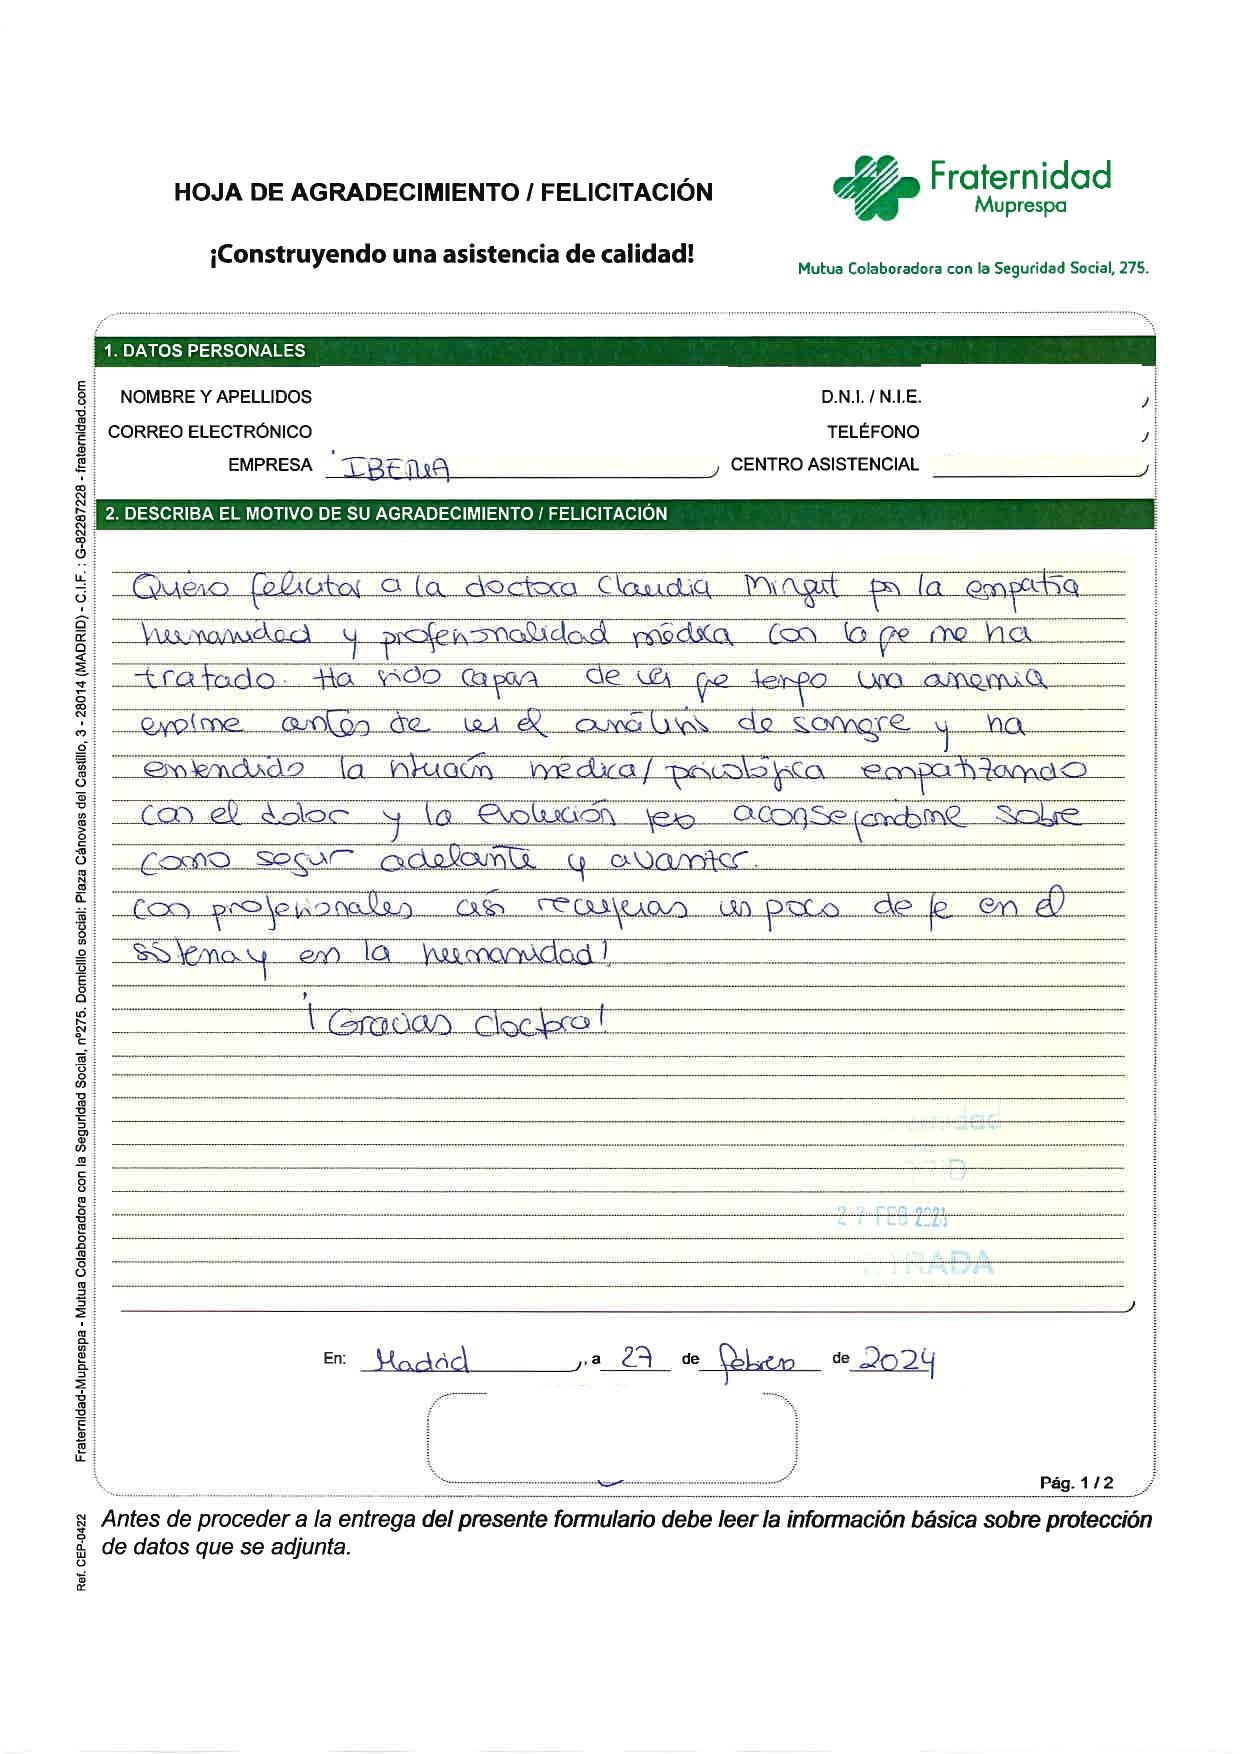 HOJA DE AGRADECIMIENTO / FELICITACIÓN
¡Construyendo una asistencia de calidad!
Fraternidad
Muprespa
Mutua Colaboradora con la Seguridad Social, 275.
1. DATOS PERSONALES
NOMBRE Y APELLIDOS
D.N.I. / N.I.E.
CORREO ELECTRÓNICO
TELÉFONO
EMPRESA IBERIA
CENTRO ASISTENCIAL
2. DESCRIBA EL MOTIVO DE SU AGRADECIMIENTO / FELICITACIÓN
Quiero felicitar a la doctora Claudia Mingut por la empatía
humanidad y profesionalidad médica con la que me ha
tratado. Ha sido capaz de ver que tengo una anemia
enorme antes de ver el análisis de sangre y ha
entendido la situación médica/psicológica empatizando
con el dolor y la evolución pero aconsejandome sobre
como seguir adelante y avanzar.
con profesionales así recuperas un poco de fe en el
sistema y en la humanidad!
¡Gracias doctora!
27 FEB
En: Madrid, a 27 de febrero de 2024
Pág. 1 / 2
Antes de proceder a la entrega del presente formulario debe leer la información básica sobre protección
de datos que se adjunta.
Fraternidad-Muprespa - Mutua Colaboradora con la Seguridad Social, nº275. Domicilio social: Plaza Cánovas del Castillo, 3 - 28014 (MADRID) - C.I.F. : G-82287228 - fraternidad.com
Ref. CEP-0422